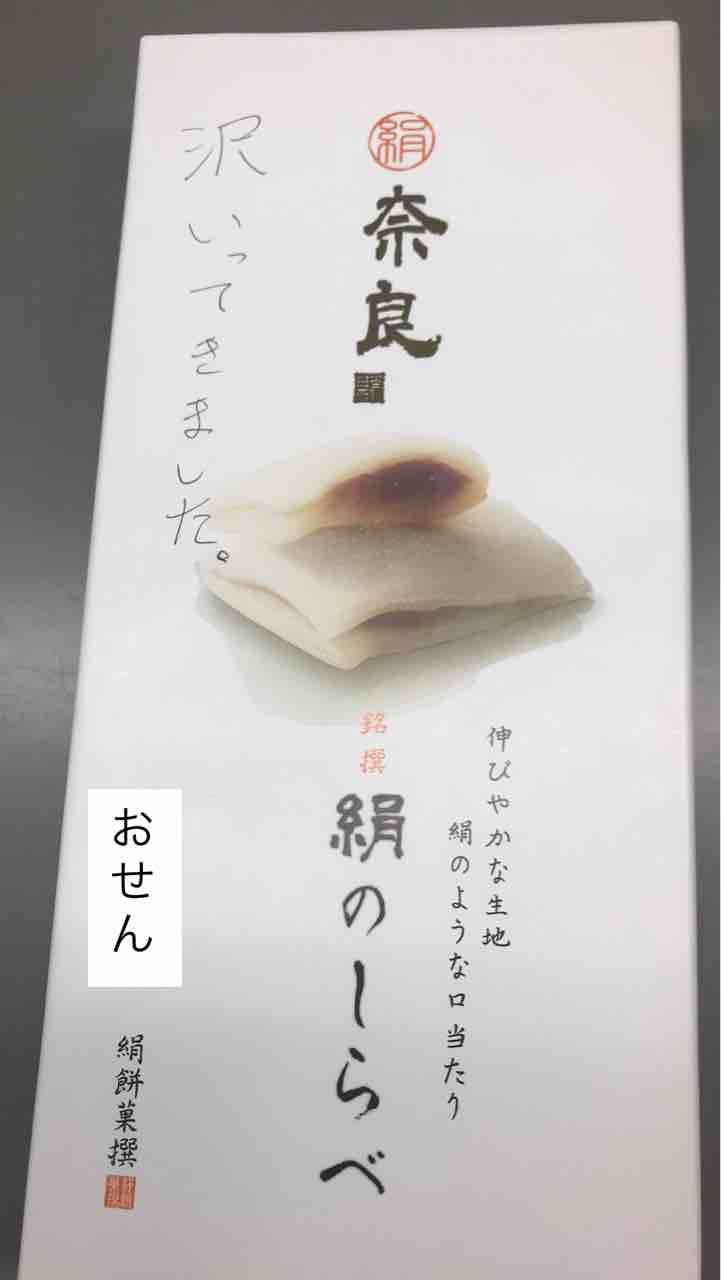 絹
奈良
伸びやかな生地
絹のような口当たり
銘撰
絹のしらべ
沢いってきました。
おせん
絹餅菓撰